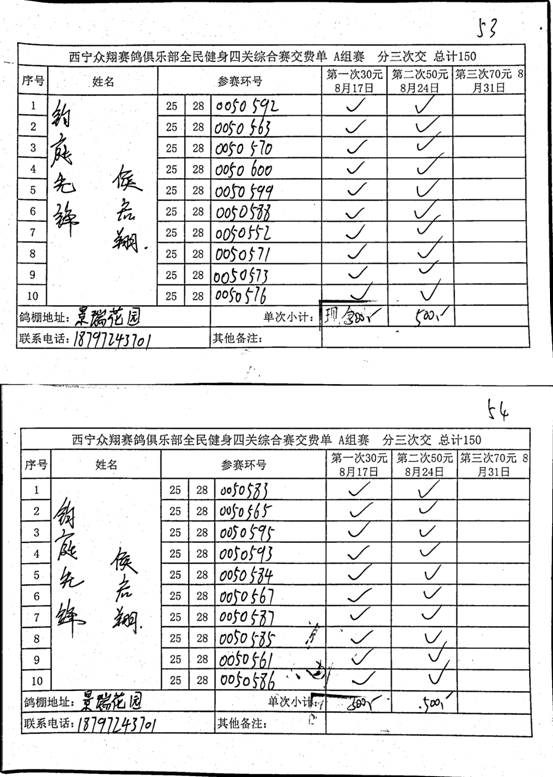 53
西宁众翔赛鸽俱乐部全民健身四关综合赛交费单 A组赛 分三次交 总计150
序号 姓名 参赛环号 第一次30元 8月17日 第二次50元 8月24日 第三次70元 8月31日
侯启翔
1 25 28 0050592 ✓ ✓
2 25 28 0050563 ✓ ✓
3 25 28 0050570 ✓ ✓
4 25 28 0050600 ✓ ✓
5 25 28 0050599 ✓ ✓
6 25 28 0050588 ✓ ✓
7 25 28 0050552 ✓ ✓
8 25 28 0050571 ✓ ✓
9 25 28 0050573 ✓ ✓
10 25 28 0050576 ✓ ✓
鸽棚地址：景瑞花园 单次小计： 现 300 500
联系电话：18797243701 其他备注：
54
西宁众翔赛鸽俱乐部全民健身四关综合赛交费单 A组赛 分三次交 总计150
序号 姓名 参赛环号 第一次30元 8月17日 第二次50元 8月24日 第三次70元 8月31日
侯启翔
1 25 28 0050583 ✓ ✓
2 25 28 0050565 ✓ ✓
3 25 28 0050595 ✓ ✓
4 25 28 0050593 ✓ ✓
5 25 28 0050584 ✓ ✓
6 25 28 0050567 ✓ ✓
7 25 28 0050587 ✓ ✓
8 25 28 0050585 ✓ ✓
9 25 28 0050561 ✓ ✓
10 25 28 0050586 ✓ ✓
鸽棚地址：景瑞花园 单次小计： 300 500
联系电话：18797243701 其他备注：